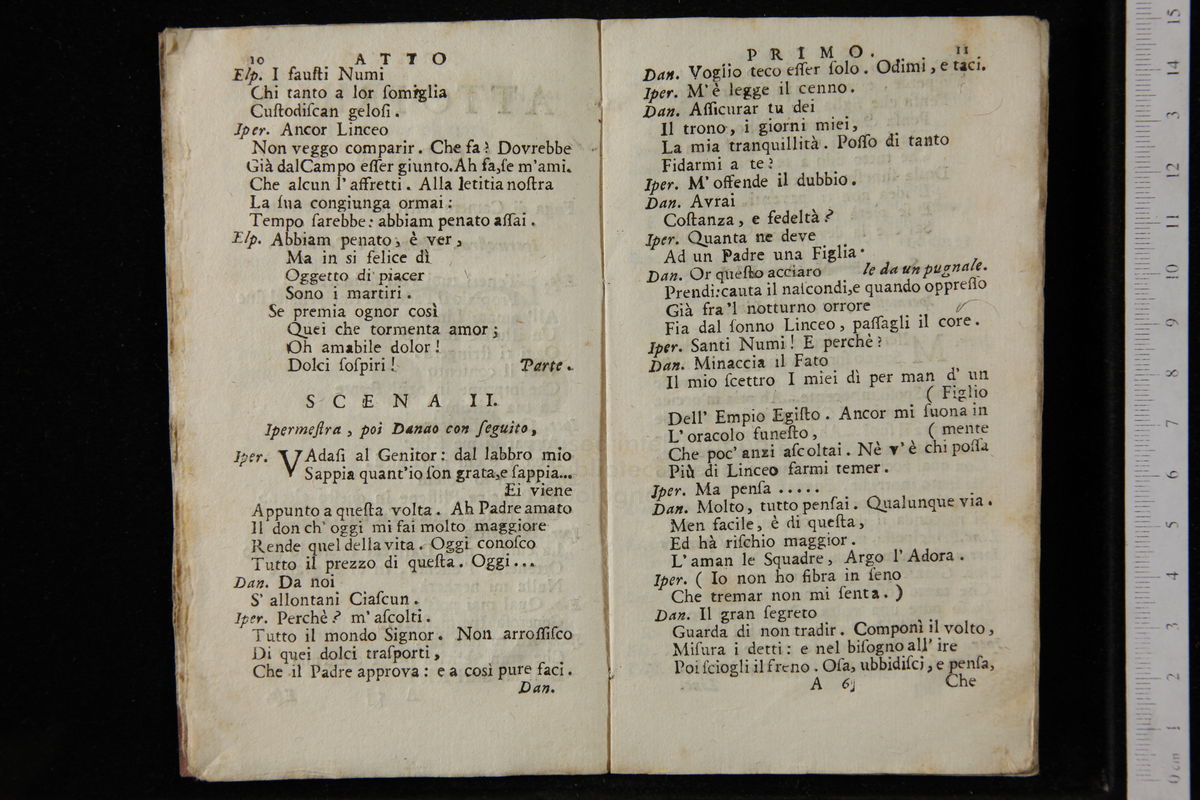 10 ATTO
Elp. I fauſti Numi
Chi tanto a lor ſomiglia
Cuſtodiſcan geloſi.
Iper. Ancor Linceo
Non veggo comparir. Che fa? Dovrebbe
Già dal Campo eſſer giunto. Ah fa, ſe m'ami.
Che alcun l'affretti. Alla letitia noſtra
La ſua congiunga ormai:
Tempo ſarebbe: abbiam penato aſſai.
Elp. Abbiam penato, è ver,
Ma in si felice dì
Oggetto di piacer
Sono i martiri.
Se premia ognor così
Quei che tormenta amor;
Oh amabile dolor!
Dolci ſoſpiri! Parte.
SCENA II.
Ipermeſtra, poi Danao con ſeguito,
Iper. VAdaſi al Genitor: dal labbro mio
Sappia quant'io ſon grata, e ſappia...
Ei viene
Appunto a queſta volta. Ah Padre amato
Il don ch'oggi mi fai molto maggiore
Rende quel della vita. Oggi conoſco
Tutto il prezzo di queſta. Oggi...
Dan. Da noi
S'allontani Ciaſcun.
Iper. Perchè? m'aſcolti.
Tutto il mondo Signor. Non arroſſiſco
Di quei dolci traſporti,
Che il Padre approva: e a cosi pure faci.
Dan.
PRIMO. 11
Dan. Voglio teco eſſer ſolo. Odimi, e taci.
Iper. M'è legge il cenno.
Dan. Aſſicurar tu dei
Il trono, i giorni miei,
La mia tranquillità. Poſſo di tanto
Fidarmi a te?
Iper. M'offende il dubbio.
Dan. Avrai
Coſtanza, e fedeltà?
Iper. Quanta ne deve
Ad un Padre una Figlia.
Dan. Or queſto acciaro le da un pugnale.
Prendi: cauta il naſcondi, e quando oppreſſo
Già fra'l notturno orrore
Fia dal ſonno Linceo, paſſagli il core.
Iper. Santi Numi! E perchè?
Dan. Minaccia il Fato
Il mio ſcettro I miei dì per man d'un
( Figlio
Dell'Empio Egiſto. Ancor mi ſuona in
L'oracolo funeſto, ( mente
Che poc'anzi aſcoltai. Nè v'è chi poſſa
Più di Linceo farmi temer.
Iper. Ma penſa .....
Dan. Molto, tutto penſai. Qualunque via.
Men facile, è di queſta,
Ed hà riſchio maggior.
L'aman le Squadre, Argo l'Adora.
Iper. ( Io non ho fibra in ſeno
Che tremar non mi ſenta. )
Dan. Il gran ſegreto
Guarda di non tradir. Componi il volto,
Miſura i detti: e nel biſogno all'ire
Poi ſciogli il freno. Oſa, ubbidiſci, e penſa,
A 6j Che
15
14
13
12
11
10
9
8
7
6
5
4
3
2
1
0 cm